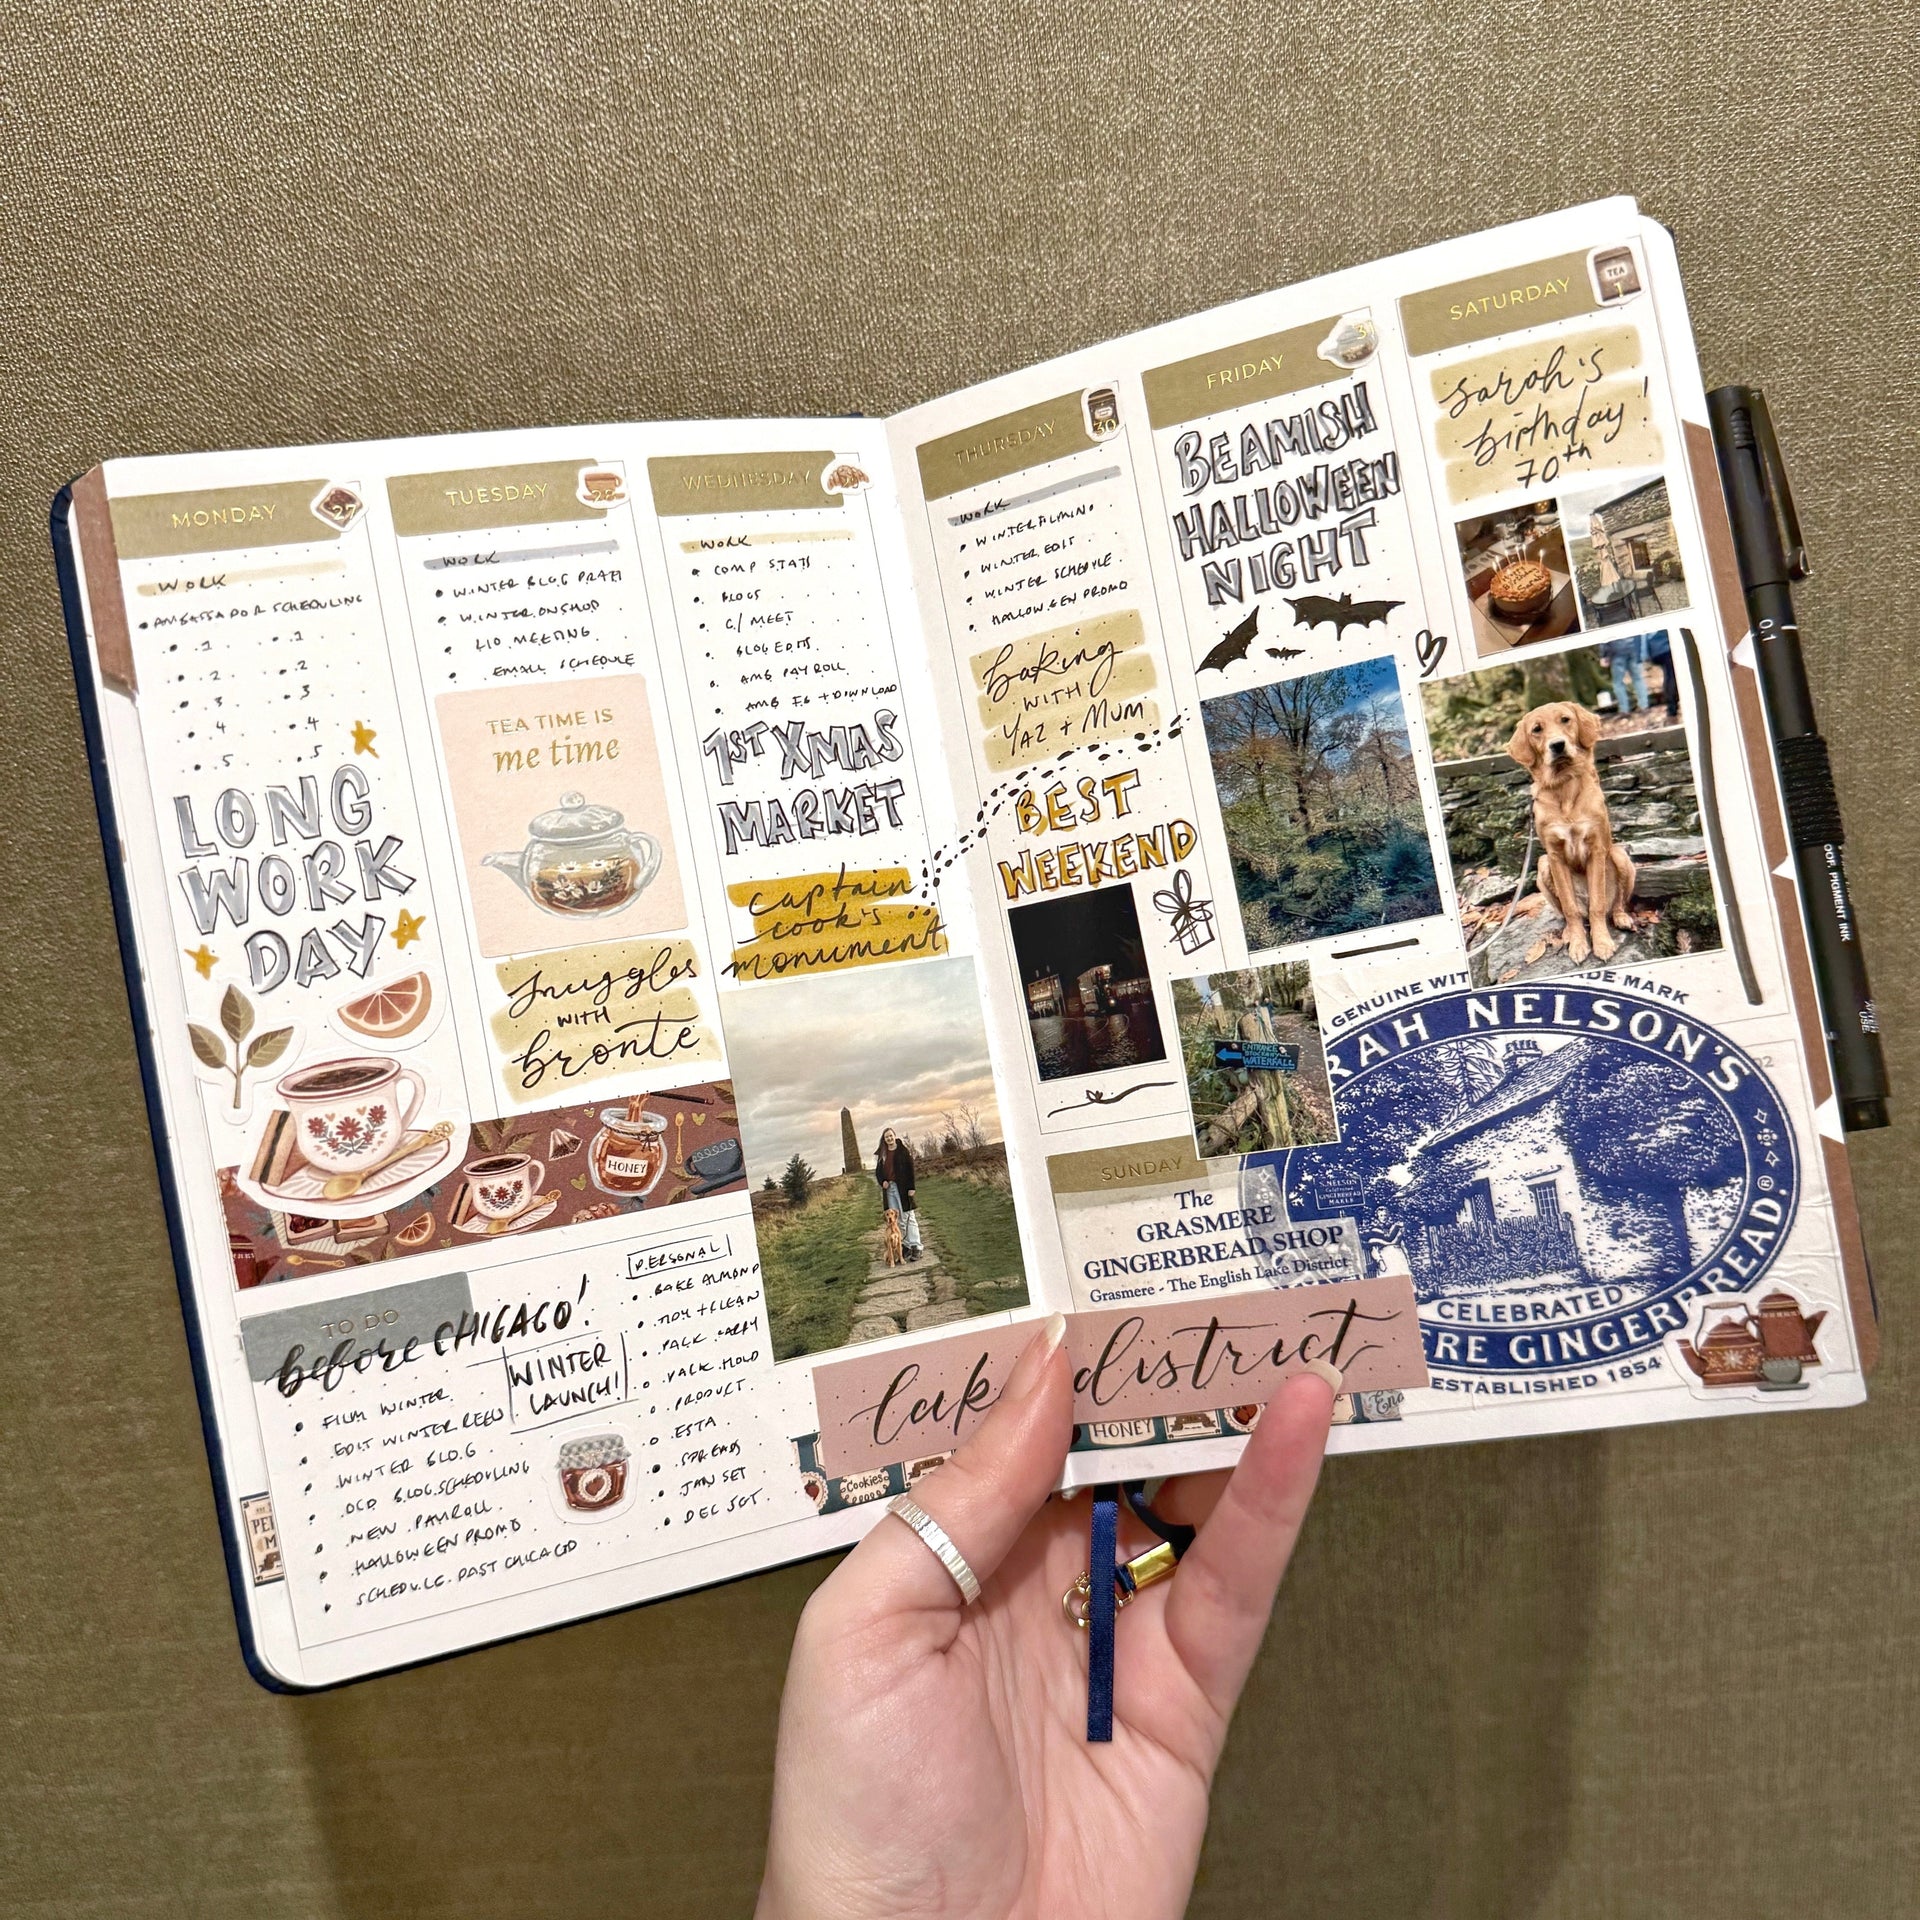 MONDAY
27
WORK
AMBASSADOR SCHEDULING
.1 .1
.2 .2
.3 .3
.4 .4
.5 .5
LONG
WORK
DAY
TUESDAY
28
WORK
WINTER BLOG
WINTER ON SHOP
LIO MEETING
EMAIL SCHEDULE
TEA TIME IS
me time
snuggles
WITH
bronte
HONEY
WEDNESDAY
WORK
COMP STATS
BLOGS
C/ MEET
BLOG EDITS
AMB PAYROLL
AMB + DOWNLOAD
1ST XMAS
MARKET
captain
cook's
monument
TO DO
before CHICAGO!
WINTER
LAUNCH!
FILM WINTER
EDIT WINTER REEL
WINTER BLOG
BLOG SCHEDULING
NEW PAYROLL
HALLOWEEN PROMO
SCHEDULE PAST CHICAGO
PERSONAL
BAKE ALMOND
TIDY + CLEAN
PACK CARRY
PACK HOLD
PRODUCT
ESTA
SPREADS
JAN SET
DEC SET
THURSDAY
30
WORK
WINTER FILMING
WINTER EDIT
WINTER SCHEDULE
HALLOWEEN PROMO
baking
WITH
YAZ + MUM
BEST
WEEKEND
FRIDAY
31
BEAMISH
HALLOWEEN
NIGHT
SATURDAY
TEA
1
sarah's
birthday!
70th
ENTRANCE
WATERFALL
SUNDAY
The
GRASMERE
GINGERBREAD SHOP
Grasmere - The English Lake District
GENUINE WIT DE MARK
RAH NELSON'S
CELEBRATED
ERE GINGERBREAD.®
ESTABLISHED 1854
lak district
Cookies
HONEY
0.1
OOF. PIGMENT INK